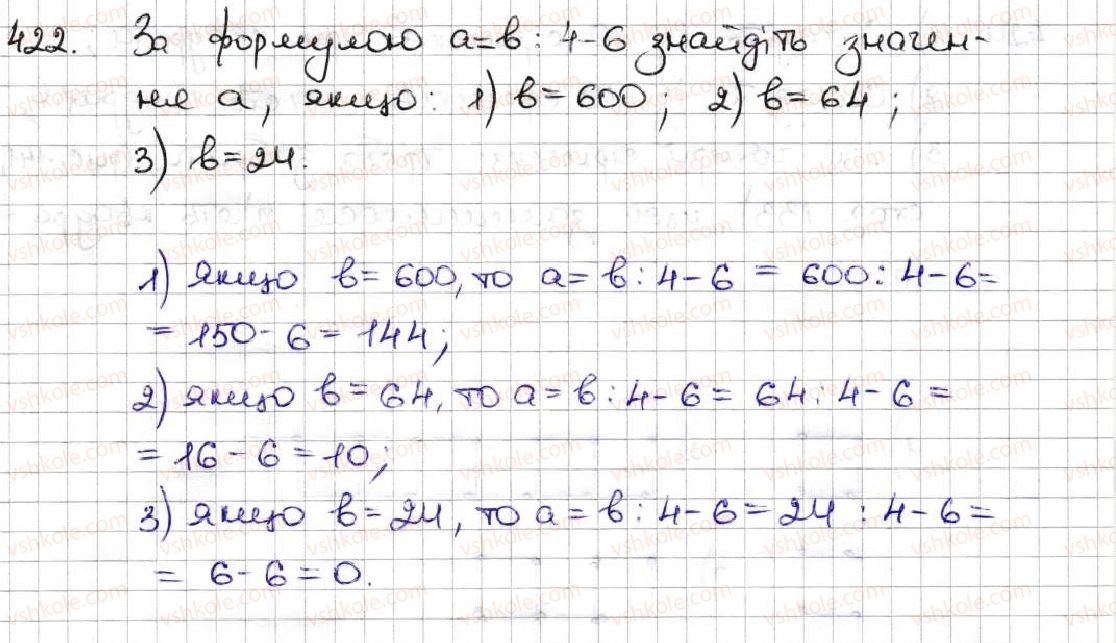 422. За формулою a=b:4-6 знайдіть значен-
ня a, якщо: 1) b=600; 2) b=64;
3) b=24.
1) Якщо b=600, то a=b:4-6=600:4-6=
=150-6=144;
2) якщо b=64, то a=b:4-6=64:4-6=
=16-6=10;
3) якщо b=24, то a=b:4-6=24:4-6=
=6-6=0.